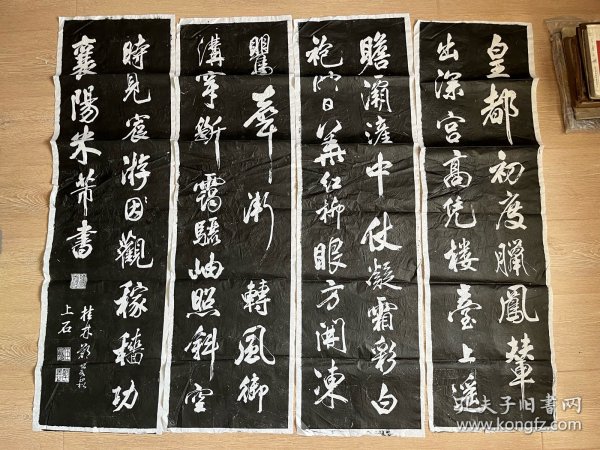 皇都初度臘鳳輦
出深宮高凭樓臺上遥
瞻灞滻中仗凝霜彩白
袍映日華紅柳眼方開凍
鸎聲漸轉風御
溝穿斷靄驪岫照斜空
時見宸游因觀稼穡功
襄陽米芾書
桂林
上石
孔夫子旧书网
www.kongfz.com